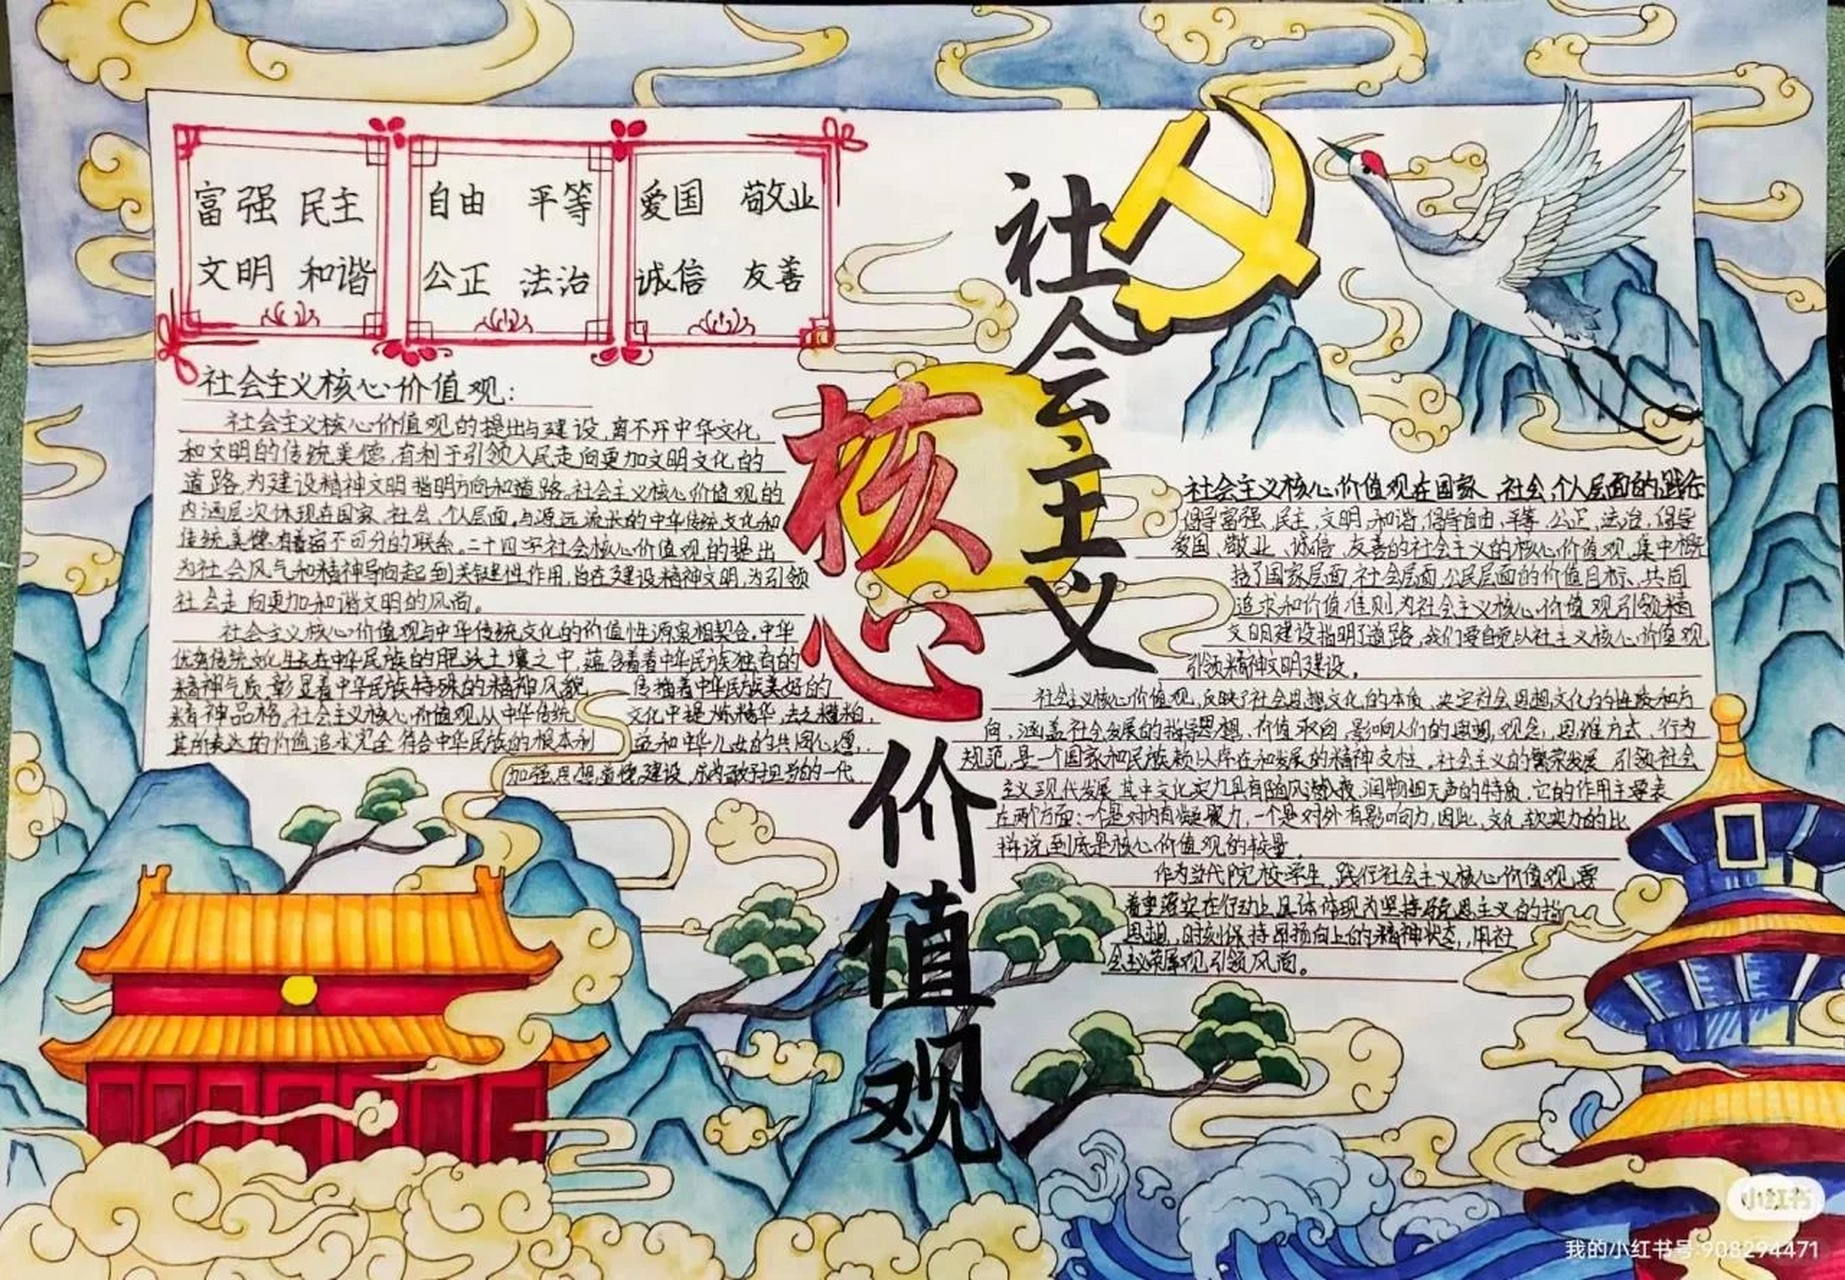 富强 民主
文明 和谐
自由 平等
公正 法治
爱国 敬业
诚信 友善
社会主义
核心价值观
社会主义核心价值观:
社会主义核心价值观的提出与建设,离不开中华文化
和文明的传统美德,有利于引领人民走向更加文明文化的
道路,为建设精神文明指明方向和道路。社会主义核心价值观的
内涵层次体现在国家、社会、个人层面,与源远流长的中华传统文化和
传统美德有着密不可分的联系。二十四字社会核心价值观的提出
为社会风气和精神导向起到关键性作用,旨在建设精神文明,为引领
社会走向更加和谐文明的风尚。
社会主义核心价值观与中华传统文化的价值性源泉相契合,中华
优秀传统文化生长在中华民族的肥沃土壤之中,蕴含着着中华民族独有的
精神气质,彰显着中华民族特殊的精神风貌, 传播着中华民族美好的
精神品格,社会主义核心价值观从中华传统 文化中提炼精华,去之糟粕,
其所表达的价值追求完全符合中华民族的根本利 益和中华儿女的共同心愿,
加强思想道德建设,成为敢于担当的一代
社会主义核心价值观在国家、社会、个人层面的践行
倡导富强、民主、文明、和谐,倡导自由、平等、公正、法治,倡导
爱国、敬业、诚信、友善的社会主义的核心价值观,集中概
括了国家层面,社会层面,公民层面的价值目标、共同
追求和价值准则,为社会主义核心价值观引领精
文明建设指明了道路,我们要自觉以社主义核心价值观
引领精神文明建设。
社会主义核心价值观,反映了社会思想文化的本质,决定社会思想文化的性质和方
向,涵盖社会发展的指导思想,价值取向,影响人们的思想,观念,思维方式,行为
规范,是一个国家和民族赖以存在和发展的精神支柱。社会主义的繁荣发展,引领社会
主义现代发展,其中文化实力具有随风潜入夜,润物细无声的特质,它的作用主要表
在两个方面:一个是对内有凝聚力,一个是对外有影响力,因此,文化软实力的比
拼说到底是核心价值观的较量。
作为当代院校学生,践行社会主义核心价值观,要
着重落实在行动上,具体体现为坚持马克思主义的指
思想,时刻保持昂扬向上的精神状态,用社
会主义荣辱观引领风尚。
小红书
我的小红书号:908294471